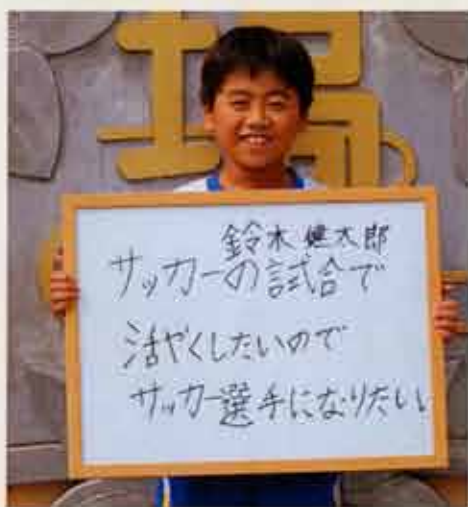 鈴木健太郎
サッカーの試合で
活やくしたいので
サッカー選手になりたい